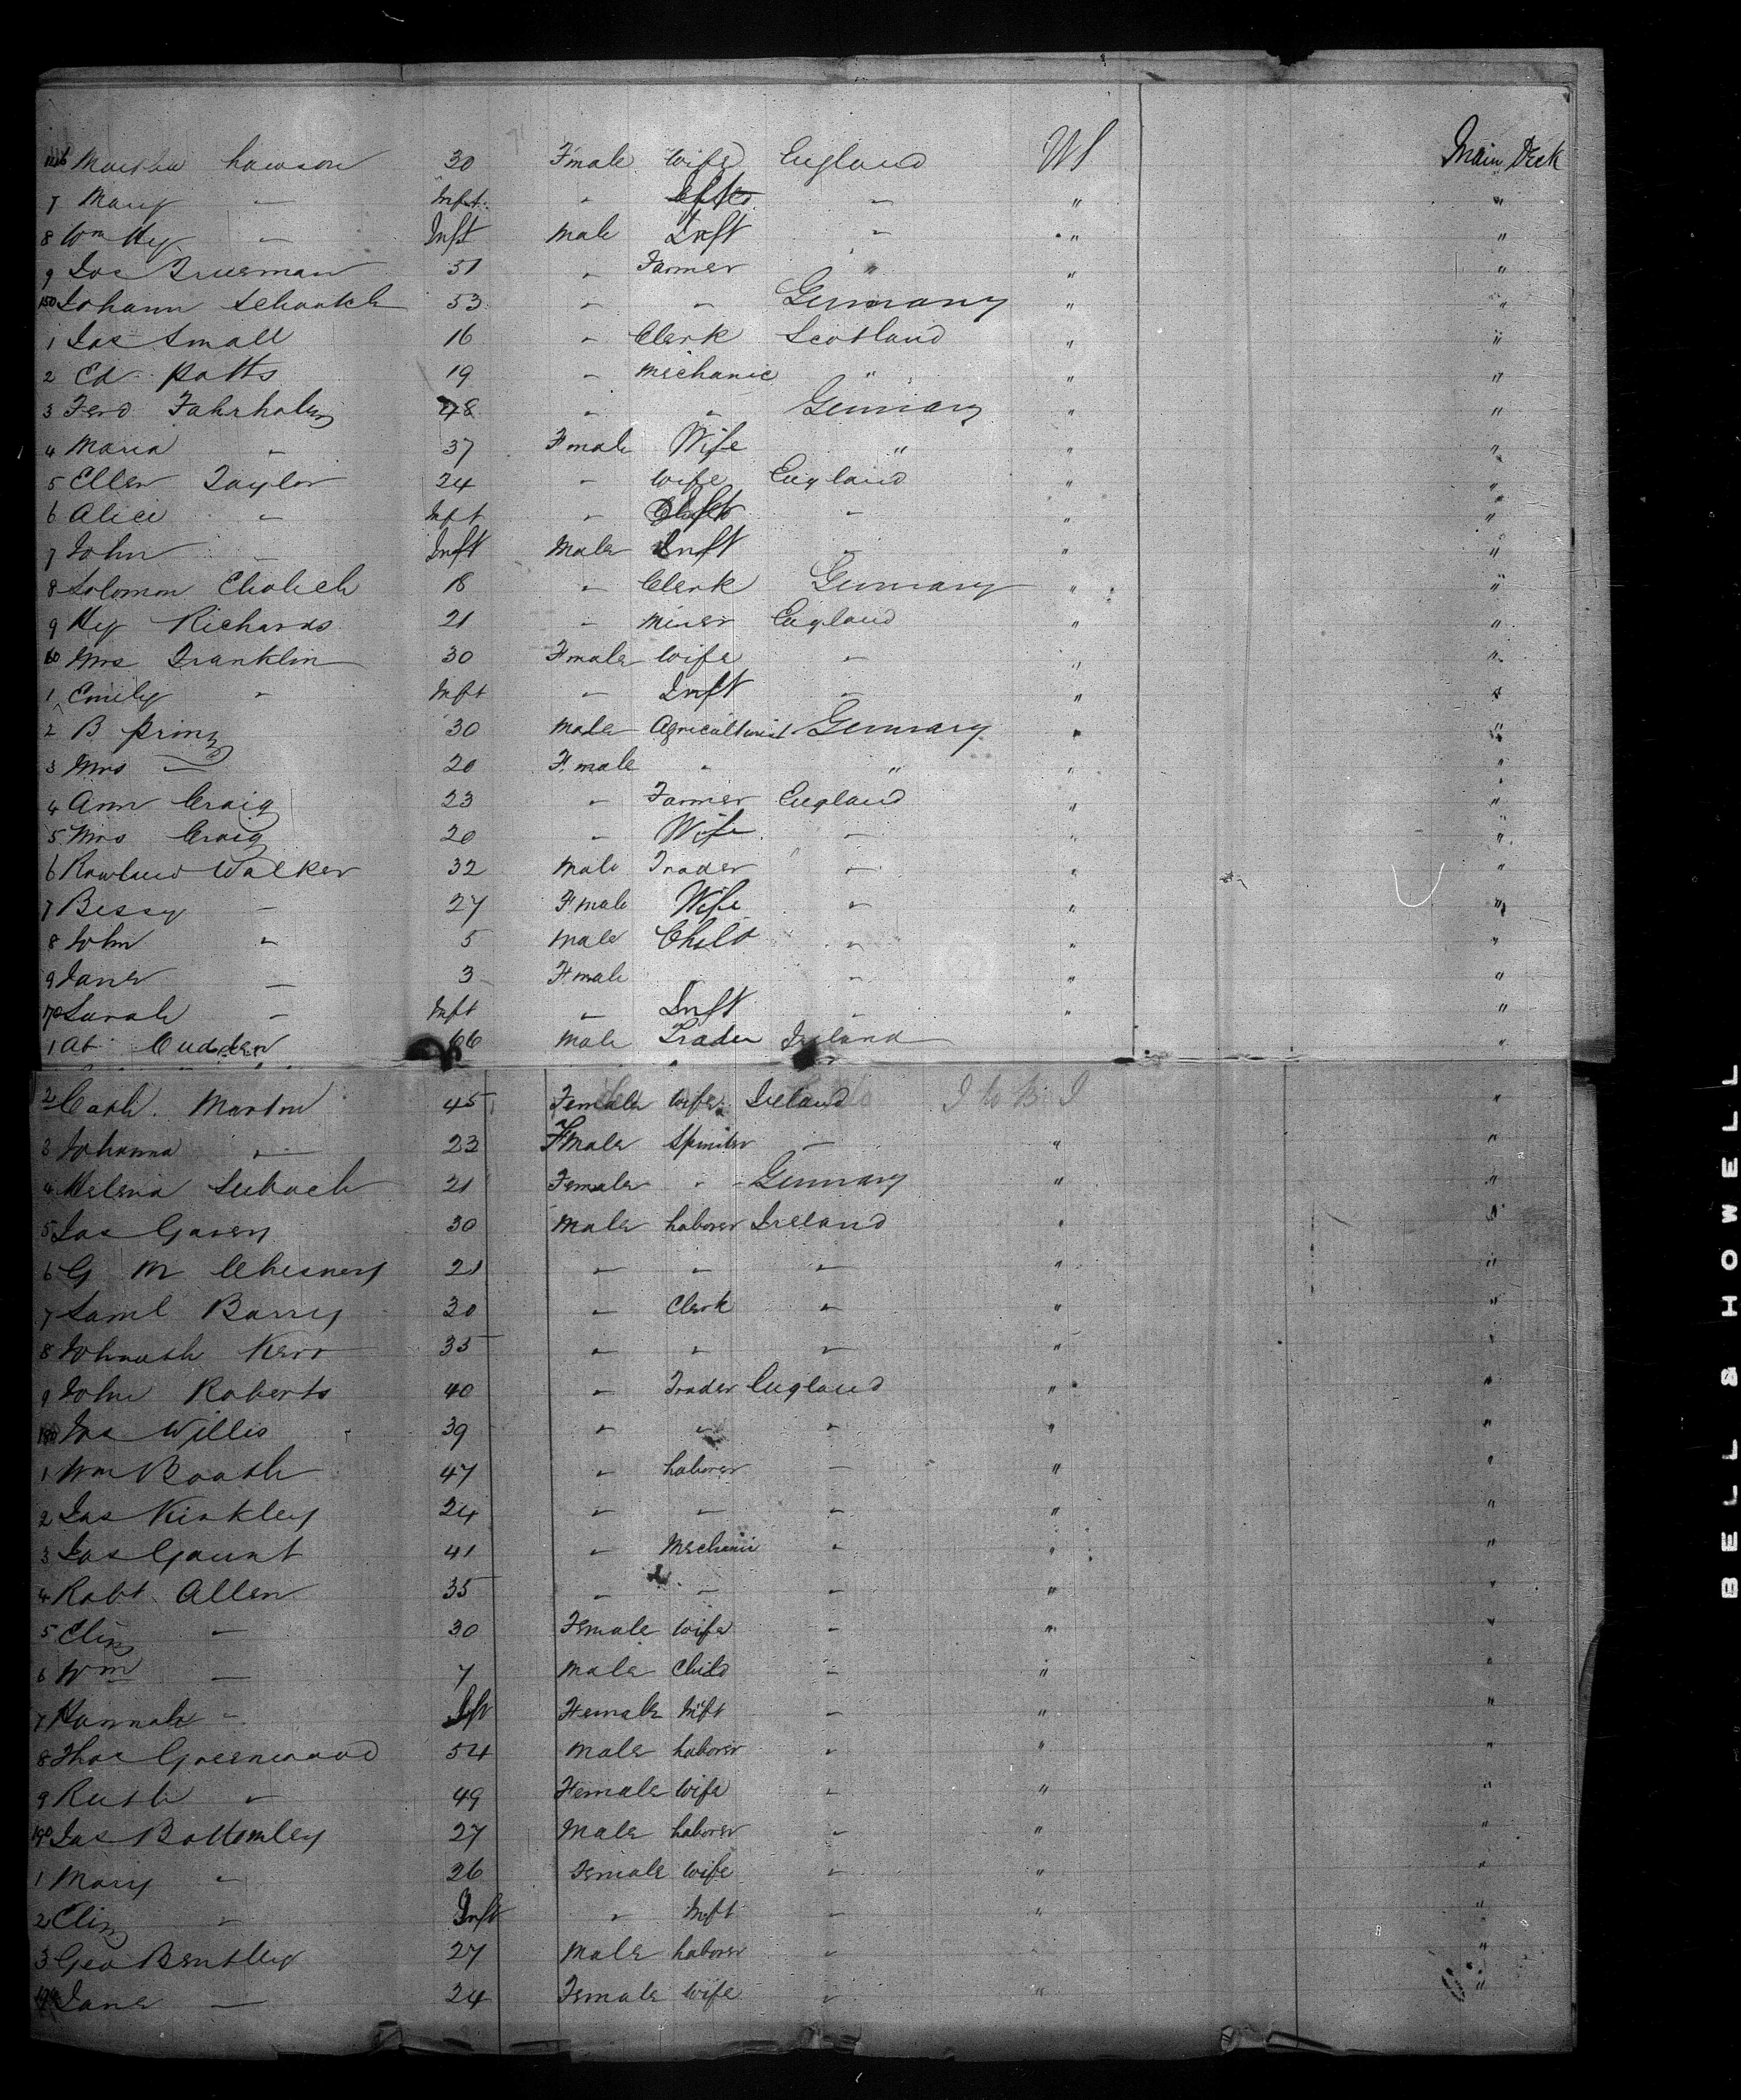 146 Martha Lawson 30 Fmale Wife England US Main Deck
7 Mary — Inft " — " "
8 Wm Hy — Inft Male Inft — " "
9 Jos 31 " Farmer " " "
150 Johann 53 " " Germany " "
1 Jas Small 16 " Clerk Scotland " "
2 Ed Potts 19 " Mechanic " " "
3 Ferd 48 " " Germany " "
4 Maria " 37 Fmale Wife " " "
5 Ellen Taylor 24 " Wife England " "
6 Alice " Inft " " " "
7 John — Inft Male Inft — " "
8 Solomon 18 " Clerk Germany " "
9 Hy Richards 21 " Miner England " "
60 Mrs Franklin 30 Fmale Wife " " "
1 Emily " Inft " Inft — " "
2 B Prinz 30 Male Agriculturist Germany " "
3 Mrs — 20 Fmale " " " "
4 Ann Craig 23 " Farmer England " "
5 Mrs Craig 20 " Wife — " "
6 Rowland Walker 32 Male Trader — " "
7 Bessy — 27 Fmale Wife " " "
8 John " 5 Male Child " " "
9 Jane — 3 Fmale " " "
70 Sarah — Inft " Inft " " "
1 At 66 Male Trader Ireland "
2 Cath. Martin 45 Female Wife Ireland "
3 Johanna " 23 Fmale Spinster — " "
4 Helena 21 Female " Germany " "
5 Jas Gavey 30 Male Laborer Ireland " "
6 G M Chesney 21 " " " " "
7 Saml Barry 30 " Clerk " " "
8 Kerr 35 " " " " "
9 John Roberts 40 " Trader England " "
180 Jos Willis 39 " " " " "
1 Wm Booth 47 " Laborer — " "
2 Jas Kirkley 24 " " " " "
3 Jas Gaunt 41 " Mechanic " " "
4 Robt Allen 35 " " " " "
5 Eliz — 30 Female Wife " " "
6 Wm — 7 Male Child — " "
7 Hannah " Inft Female Inft — " "
8 Thos Greenwood 54 Male Laborer " " "
9 Ruth " 49 Female Wife " " "
190 Jas Bottomley 27 Male Laborer " " "
1 Mary " 26 Female Wife " " "
2 Eliz " Inft " Inft — " "
3 Geo Bentley 27 Male Laborer " " "
194 Jane — 24 Female Wife " " "
BELL & HOWELL